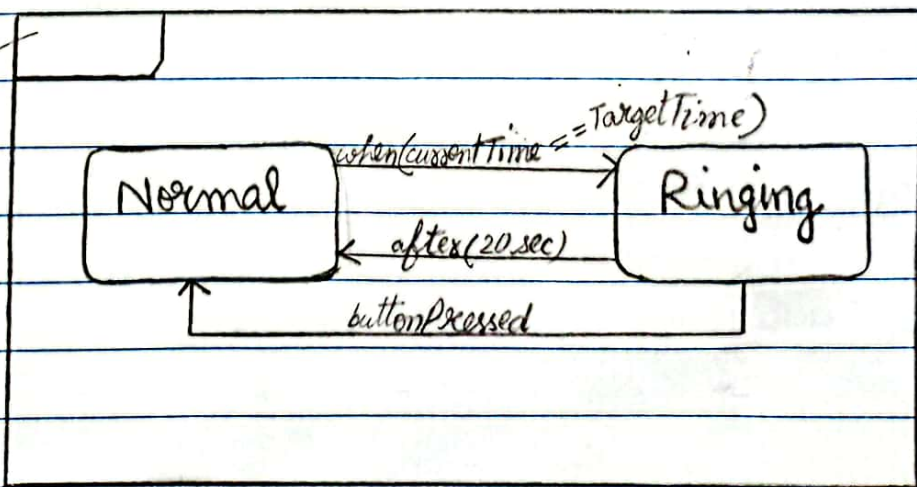 when(currentTime == TargetTime)
Normal
Ringing
after(20 sec)
buttonPressed